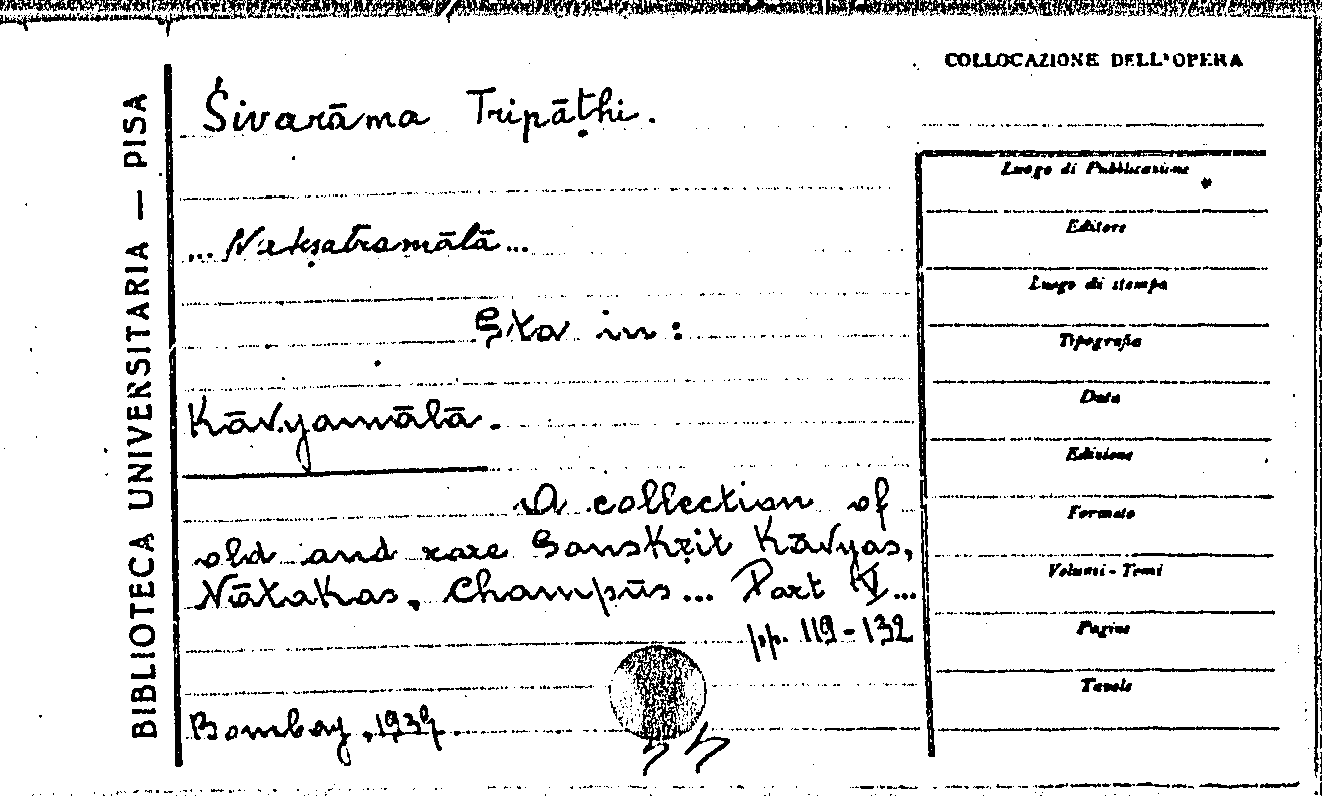 BIBLIOTECA UNIVERSITARIA — PISA
COLLOCAZIONE DELL'OPERA
Śivarāma Tripāṭhi.
... Nakṣatramālā ...
Sta in:
Kāvyamālā.
A collection of
old and rare Sanskṛit Kāvyas,
Nāṭakas, Champūs ... Part V...
pp. 119-132
Bombay, 1937.
Luogo di Pubblicazione
Editore
Luogo di stampa
Tipografia
Data
Edizione
Formato
Volumi - Tomi
Pagine
Tavole